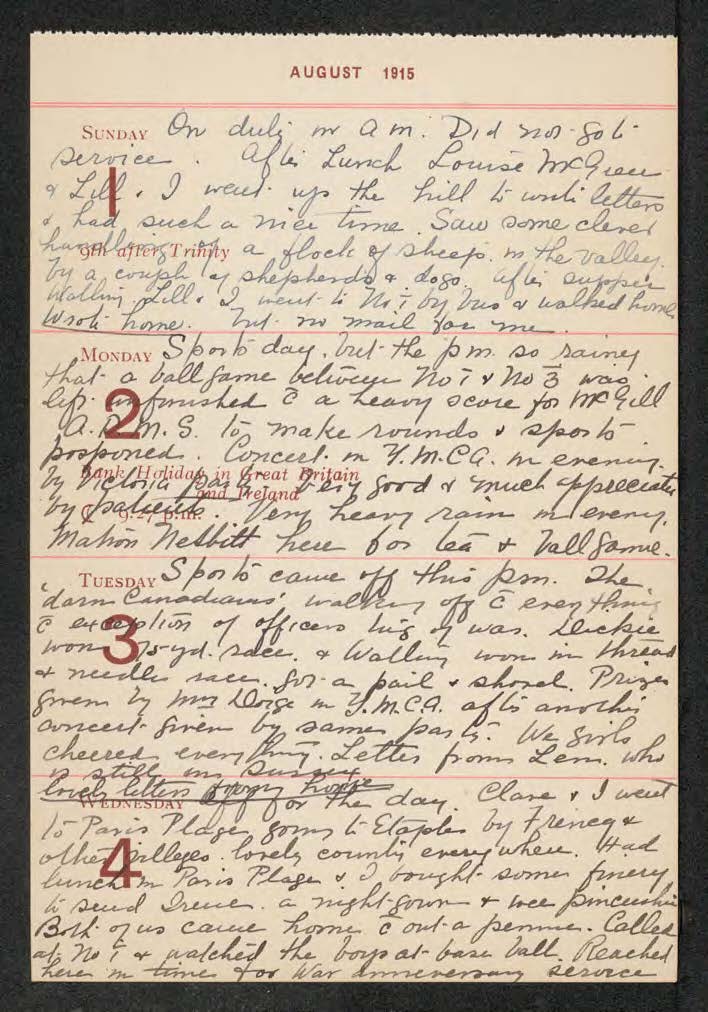 AUGUST 1915
SUNDAY On duty in a m. Did not go to
service. After Lunch Louise McGreer
& Lill & I went up the hill to write letters
& had such a nice time. Saw some clever
handling of a flock of sheep in the valley
9th after Trinity
by a couple of shepherds & dogs. After supper
Walling Lill & I went to No 1 by bus & walked home
Wrote home. but no mail for me.
1
MONDAY Sports day, but the pm. so rainey
that a ball game between No 1 & No 3 was
left unfinished c̄ a heavy score for McGill
A.D.M.S. to make rounds & sports
posponed. Concert in Y.M.C.A. in evening
Bank Holiday in Great Britain
and Ireland
by Victoria party. Very good & much appreciated
by patients. Very heavy rain in eveng.
9.27 p.m.
Matron Nesbitt here for tea & ball game.
2
TUESDAY Sports came off this pm. The
'darn Canadians' walking off c̄ everything
c̄ exception of officers tug of war. Dickie
won 75 yd. race. & Walling won in thread
& needle race. got a pail & shovel. Prizes
given by Mrs in Y.M.C.A. after another
concert given by same party. We girls
cheered everything. Letter from Len. who
is still in Surrey
lovely letters from home
3
WEDNESDAY Off for the day. Clare & I went
to Paris Plage going to Etaples by Frencq &
other villeges. lovely country everywhere. Had
lunch in Paris Plage & I bought some finery
to send Irene. a night-gown & wee pincushion
Both of us came home c̄ out a pennie. Called
at No 1 & watched the boys at base ball. Reached
here in time for War anniversary service
4